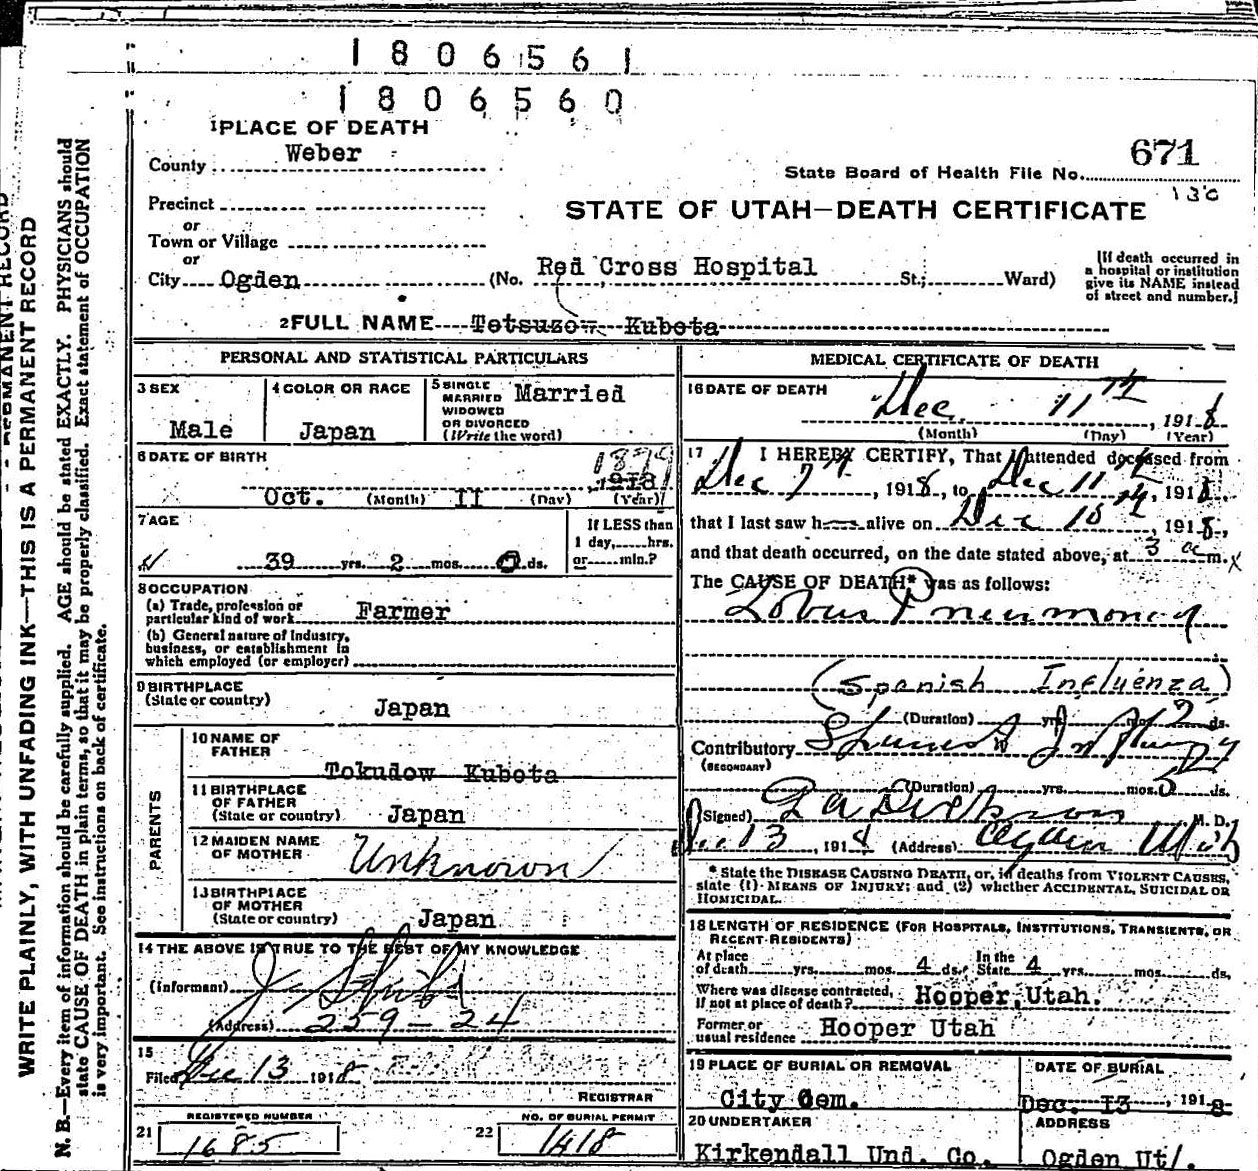 1806561
1806560
1 PLACE OF DEATH
County Weber
State Board of Health File No. 671
130
Precinct
or
Town or Village
or
City Ogden (No. Red Cross Hospital St.; Ward)
STATE OF UTAH—DEATH CERTIFICATE
[If death occurred in
a hospital or institution
give its NAME instead
of street and number.]
2 FULL NAME Tetsuzow Kubota
WRITE PLAINLY, WITH UNFADING INK—THIS IS A PERMANENT RECORD
N. B.—Every item of information should be carefully supplied. AGE should be stated EXACTLY. PHYSICIANS should
state CAUSE OF DEATH in plain terms, so that it may be properly classified. Exact statement of OCCUPATION
is very important. See instructions on back of certificate.
PERSONAL AND STATISTICAL PARTICULARS
3 SEX
Male
4 COLOR OR RACE
Japan
5 SINGLE
MARRIED
WIDOWED
OR DIVORCED
(Write the word)
Married
6 DATE OF BIRTH
1879
Oct. (Month) 11 (Day) 1918 (Year)
7 AGE
39 yrs. 2 mos. 0 ds.
If LESS than
1 day, hrs.
or min.?
8 OCCUPATION
(a) Trade, profession or
particular kind of work Farmer
(b) General nature of Industry,
business, or establishment in
which employed (or employer)
9 BIRTHPLACE
(State or country)
Japan
PARENTS
10 NAME OF
FATHER
Tokudow Kubota
11 BIRTHPLACE
OF FATHER
(State or country) Japan
12 MAIDEN NAME
OF MOTHER Unknown
13 BIRTHPLACE
OF MOTHER
(State or country) Japan
14 THE ABOVE IS TRUE TO THE BEST OF MY KNOWLEDGE
(Informant) J
(Address) 259 - 24
15
Filed Dec 13 1918
REGISTRAR
REGISTERED NUMBER
21 1685
NO. OF BURIAL PERMIT
22 1418
MEDICAL CERTIFICATE OF DEATH
16 DATE OF DEATH
Dec. 11th, 1918
(Month) (Day) (Year)
17 I HEREBY CERTIFY, That I attended deceased from
Dec 7th, 1918, to Dec 11th, 1918,
that I last saw h alive on Dec 10th, 1918,
and that death occurred, on the date stated above, at 3 a m. x
The CAUSE OF DEATH* was as follows:
Lobar Pneumonia
(Spanish Influenza)
(Duration) yrs. mos. 2 ds.
Contributory
(SECONDARY)
(Duration) yrs. mos. 5 ds.
(Signed) M. D.
Dec 13, 1918 (Address) Ogden Utah
* State the DISEASE CAUSING DEATH, or, in deaths from VIOLENT CAUSES,
state (1) MEANS OF INJURY; and (2) whether ACCIDENTAL, SUICIDAL OR
HOMICIDAL.
18 LENGTH OF RESIDENCE (FOR HOSPITALS, INSTITUTIONS, TRANSIENTS, OR
RECENT RESIDENTS)
At place
of death yrs. mos. 4 ds. In the
State 4 yrs. mos. ds.
Where was disease contracted,
if not at place of death? Hooper Utah.
Former or
usual residence Hooper Utah
19 PLACE OF BURIAL OR REMOVAL
City Cem.
DATE OF BURIAL
Dec. 13, 1918
20 UNDERTAKER
Kirkendall Und. Co.
ADDRESS
Ogden Ut/.